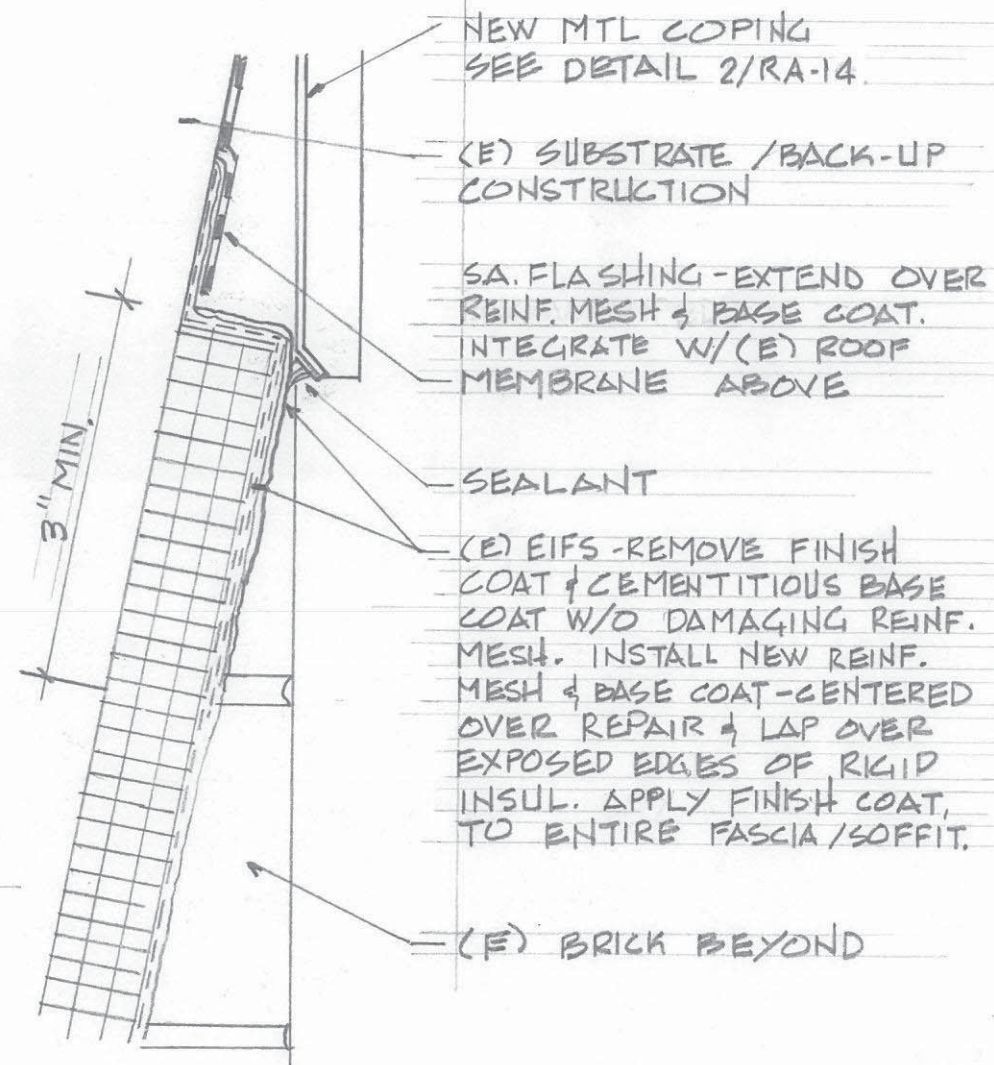 NEW MTL COPING
SEE DETAIL 2/RA-14
(E) SUBSTRATE /BACK-UP
CONSTRUCTION
S.A. FLASHING - EXTEND OVER
REINF. MESH & BASE COAT.
INTEGRATE W/(E) ROOF
MEMBRANE ABOVE
3" MIN.
SEALANT
(E) EIFS - REMOVE FINISH
COAT & CEMENTITIOUS BASE
COAT W/O DAMAGING REINF.
MESH. INSTALL NEW REINF.
MESH & BASE COAT - CENTERED
OVER REPAIR & LAP OVER
EXPOSED EDGES OF RIGID
INSUL. APPLY FINISH COAT,
TO ENTIRE FASCIA/SOFFIT.
(E) BRICK BEYOND